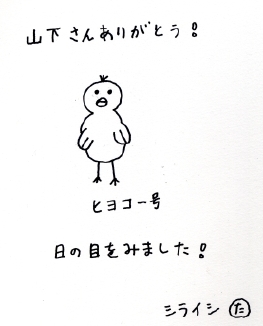 山下さんありがとう!
ヒヨコ一号
日の目をみました!
シライシ た